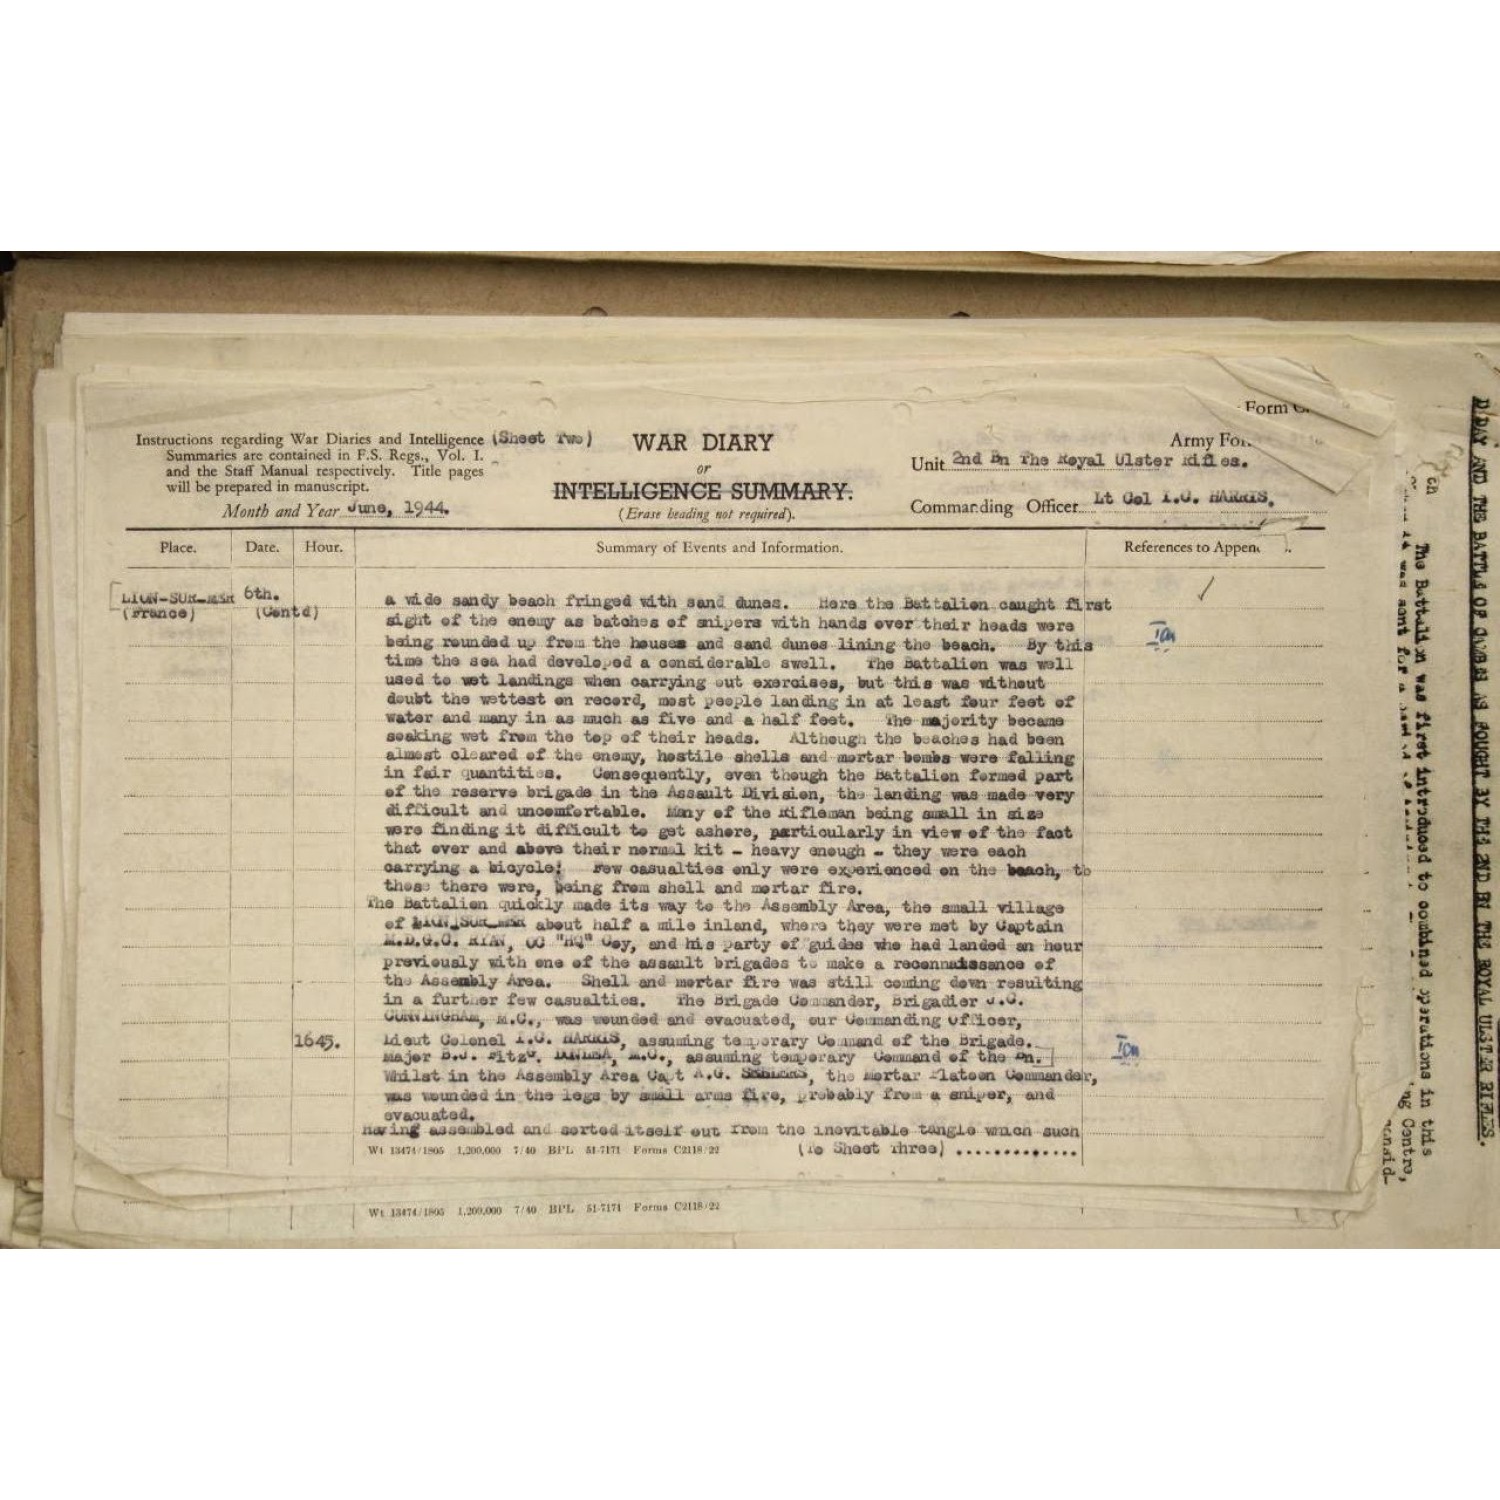 Form C.
Instructions regarding War Diaries and Intelligence (Sheet Two)
Summaries are contained in F.S. Regs., Vol. I.
and the Staff Manual respectively. Title pages
will be prepared in manuscript.
Month and Year June, 1944.
WAR DIARY
or
INTELLIGENCE SUMMARY.
(Erase heading not required).
Army For
Unit 2nd Bn The Royal Ulster Rifles.
Commanding Officer Lt Col I.C. HARRIS.
Place. Date. Hour. Summary of Events and Information. References to Appen
LION-SUR-MER 6th.
(France) (Contd)
a wide sandy beach fringed with sand dunes. Here the Battalion caught first
sight of the enemy as batches of snipers with hands over their heads were
being rounded up from the houses and sand dunes lining the beach. By this
time the sea had developed a considerable swell. The Battalion was well
used to wet landings when carrying out exercises, but this was without
doubt the wettest on record, most people landing in at least four feet of
water and many in as much as five and a half feet. The majority became
soaking wet from the top of their heads. Although the beaches had been
almost cleared of the enemy, hostile shells and mortar bombs were falling
in fair quantities. Consequently, even though the Battalion formed part
of the reserve brigade in the Assault Division, the landing was made very
difficult and uncomfortable. Many of the Rifleman being small in size
were finding it difficult to get ashore, particularly in view of the fact
that over and above their normal kit - heavy enough - they were each
carrying a bicycle! Few casualties only were experienced on the beach, to
those there were, being from shell and mortar fire.
The Battalion quickly made its way to the Assembly Area, the small village
of LION SUR MER about half a mile inland, where they were met by Captain
M.D.G.C. RYAN, OC "HQ" Coy, and his party of guides who had landed an hour
previously with one of the assault brigades to make a reconnaissance of
the Assembly Area. Shell and mortar fire was still coming down resulting
in a further few casualties. The Brigade Commander, Brigadier J.C.
CUNNINGHAM, M.C., was wounded and evacuated, our Commanding Officer,
1645. Lieut Colonel I.C. HARRIS, assuming temporary Command of the Brigade.
Major B.J. FitzG. M.C., assuming temporary Command of the Bn.
Whilst in the Assembly Area Capt A.G. the mortar Platoon Commander,
was wounded in the legs by small arms fire, probably from a sniper, and
evacuated.
Having assembled and sorted itself out from the inevitable tangle which such
Wt 13474/1805 1,200,000 7/40 BPL 51-7171 Forms C2118/22 (To Sheet Three) ..............
Wt 13474/1805 1,200,000 7/40 BPL 51-7171 Forms C2118/22
D/DAY AND THE BATTLE OF CAMBES AS FOUGHT BY THE 2ND BN THE ROYAL ULSTER RIFLES.
The Battalion was first introduced to combined operations in this
it was sent for a
ng Centre,
consid-